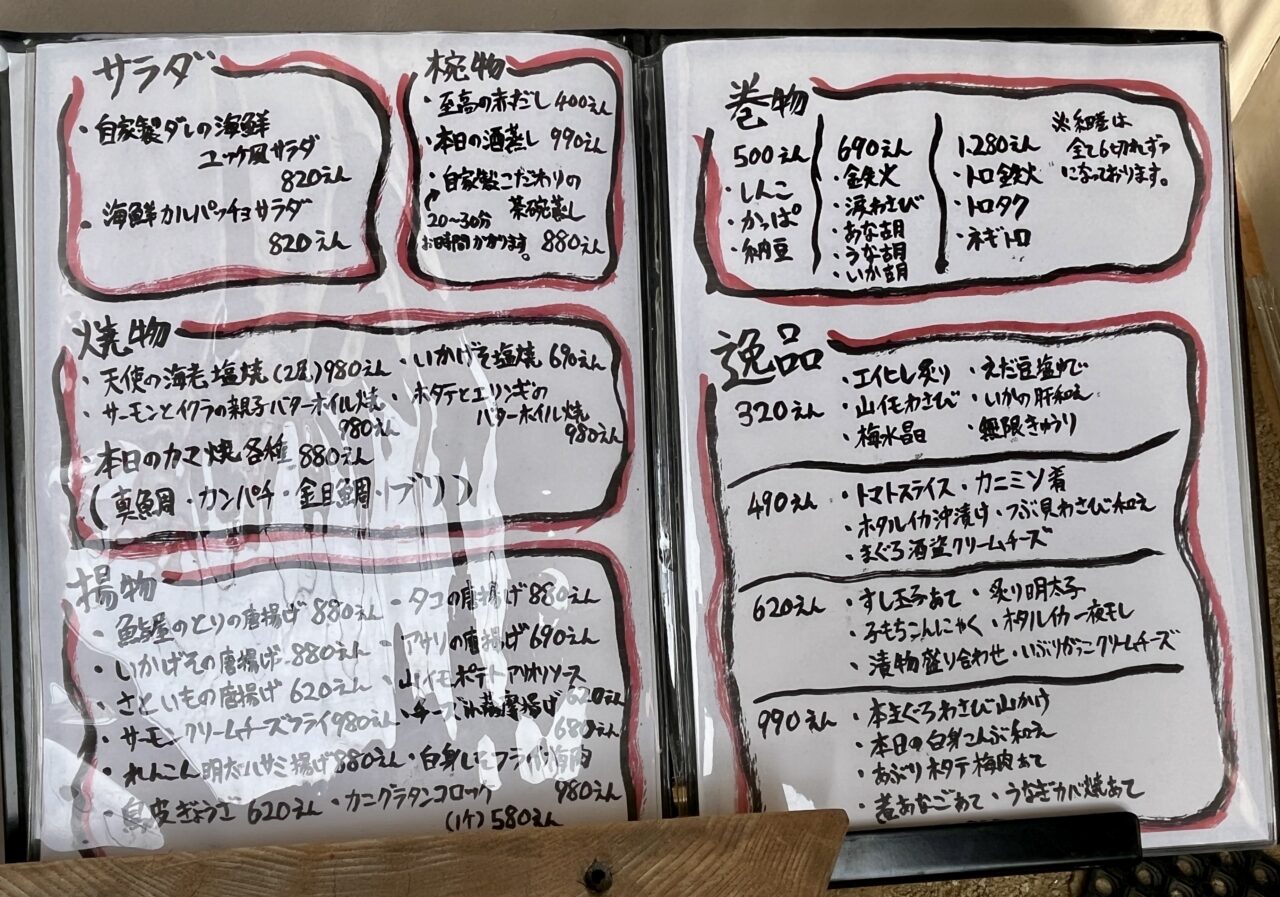 サラダ
・自家製ダレの海鮮
ユッケ風サラダ
820えん
・海鮮カルパッチョサラダ
820えん
椀物
・至高の赤だし 400えん
・本日の酒蒸し 990えん
・自家製こだわりの
茶碗蒸し
20〜30分
お時間かかります。 880えん
焼物
・天使の海老塩焼(2尾)980えん
・いかげそ塩焼 690えん
・サーモンとイクラの親子バターホイル焼
980えん
・ホタテとエリンギの
バターホイル焼
980えん
・本日のカマ焼各種 880えん
(真鯛・カンパチ・金目鯛・ブリ)
揚物
・魚屋のとりの唐揚げ 880えん
・タコの唐揚げ 880えん
・いかげその唐揚げ 880えん
・アサリの唐揚げ 690えん
・さといもの唐揚げ 620えん
・山イモポテトアリオリソース
620えん
・サーモンクリームチーズフライ 980えん
・チーズin薩摩揚げ
680えん
・れんこん明太ハサミ揚げ 880えん
・白身しそフライ 梅肉
980えん
・鳥皮ぎょうざ 620えん
・カニグラタンコロッケ
(1ケ) 580えん
巻物
500えん
・しんこ
・かっぱ
・納豆
690えん
・鉄火
・涙わさび
・あな胡
・うな胡
・いか胡
1,280えん
・トロ鉄火
・トロタク
・ネギトロ
※細巻は
全て6切れずつ
になっております。
逸品
320えん
・エイヒレ炙り ・えだ豆塩ゆで
・山イモわさび ・いかの肝和え
・梅水晶 ・無限きゅうり
490えん
・トマトスライス ・カニミソ
・ホタルイカ沖漬け ・つぶ貝わさび和え
・まぐろ酒盗クリームチーズ
620えん
・すし玉子あて ・炙り明太子
・子もちこんにゃく ・ホタルイカ一夜干し
・漬物盛り合わせ ・いぶりがっこクリームチーズ
990えん
・本まぐろわさび山かけ
・本日の白身こんぶ和え
・あぶりホタテ梅肉あて
・煮あなごあて ・うなぎカバ焼あて